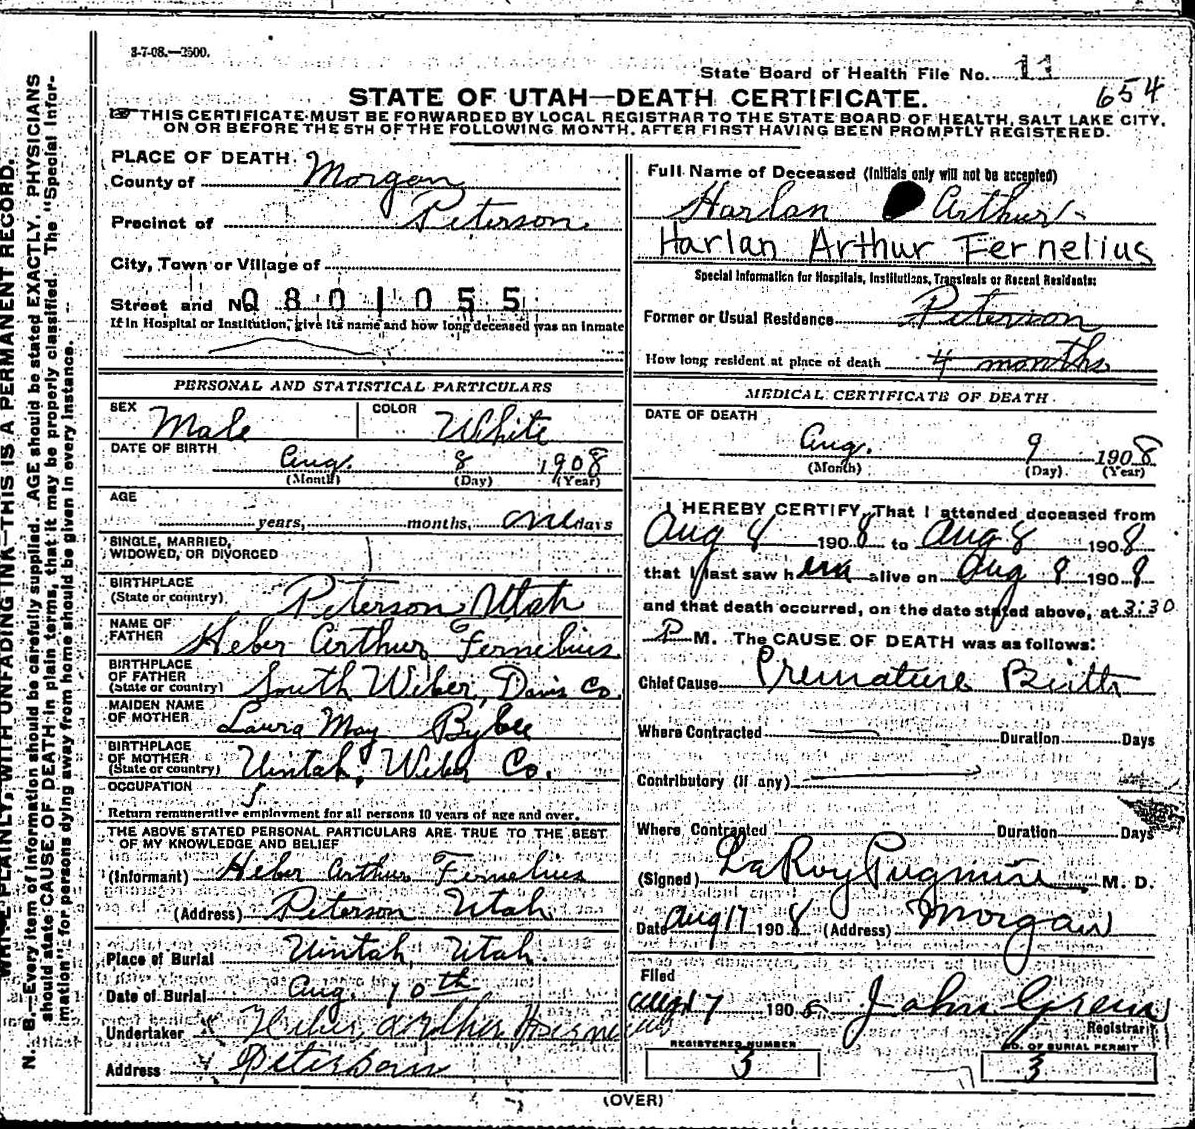 3-7-08.—2500.
State Board of Health File No. 11
654
STATE OF UTAH—DEATH CERTIFICATE.
THIS CERTIFICATE MUST BE FORWARDED BY LOCAL REGISTRAR TO THE STATE BOARD OF HEALTH, SALT LAKE CITY,
ON OR BEFORE THE 5TH OF THE FOLLOWING MONTH, AFTER FIRST HAVING BEEN PROMPTLY REGISTERED.
N. B.—Every item of information should be carefully supplied. AGE should be stated EXACTLY. PHYSICIANS
should state CAUSE OF DEATH in plain terms, that it may be properly classified. The "Special Infor-
mation" for persons dying away from home should be given in every instance.
PLAINLY, WITH UNFADING INK—THIS IS A PERMANENT RECORD.
PLACE OF DEATH.
County of Morgan
Precinct of Peterson.
City, Town or Village of
Street and No. 0801055
If in Hospital or Institution, give its name and how long deceased was an inmate
PERSONAL AND STATISTICAL PARTICULARS
SEX Male COLOR White
DATE OF BIRTH
Aug. 8 1908
(Month) (Day) (Year)
AGE
years, months, one days
SINGLE, MARRIED,
WIDOWED, OR DIVORCED
BIRTHPLACE
(State or country) Peterson Utah
NAME OF
FATHER Heber Arthur Fernelius
BIRTHPLACE
OF FATHER
(State or country) South Weber, Davis Co.
MAIDEN NAME
OF MOTHER Laura May Bybee
BIRTHPLACE
OF MOTHER
(State or country) Uintah, Weber Co.
OCCUPATION
Return remunerative employment for all persons 10 years of age and over.
THE ABOVE STATED PERSONAL PARTICULARS ARE TRUE TO THE BEST
OF MY KNOWLEDGE AND BELIEF
(Informant) Heber Arthur Fernelius
(Address) Peterson Utah
Place of Burial Uintah, Utah.
Date of Burial Aug. 10th
Undertaker Heber Arthur
Address Peterson
Full Name of Deceased (Initials only will not be accepted)
Harlan Arthur
Harlan Arthur Fernelius
Special Information for Hospitals, Institutions, Transients or Recent Residents:
Former or Usual Residence Peterson
How long resident at place of death 4 months
MEDICAL CERTIFICATE OF DEATH
DATE OF DEATH
Aug. 9 1908
(Month) (Day) (Year)
I HEREBY CERTIFY, That I attended deceased from
Aug 8 1908 to Aug 8 1908
that I last saw him alive on Aug 8 1908
and that death occurred, on the date stated above, at 3:30
P M. The CAUSE OF DEATH was as follows:
Chief Cause Premature Birth
Where Contracted Duration Days
Contributory (if any)
Where Contracted Duration Days
(Signed) LaRoy Pugmire, M. D.
Date Aug 17 1908 (Address) Morgan
Filed
Aug 17 1908 John Green
Registrar
REGISTERED NUMBER
3
NO. OF BURIAL PERMIT
3
(OVER)